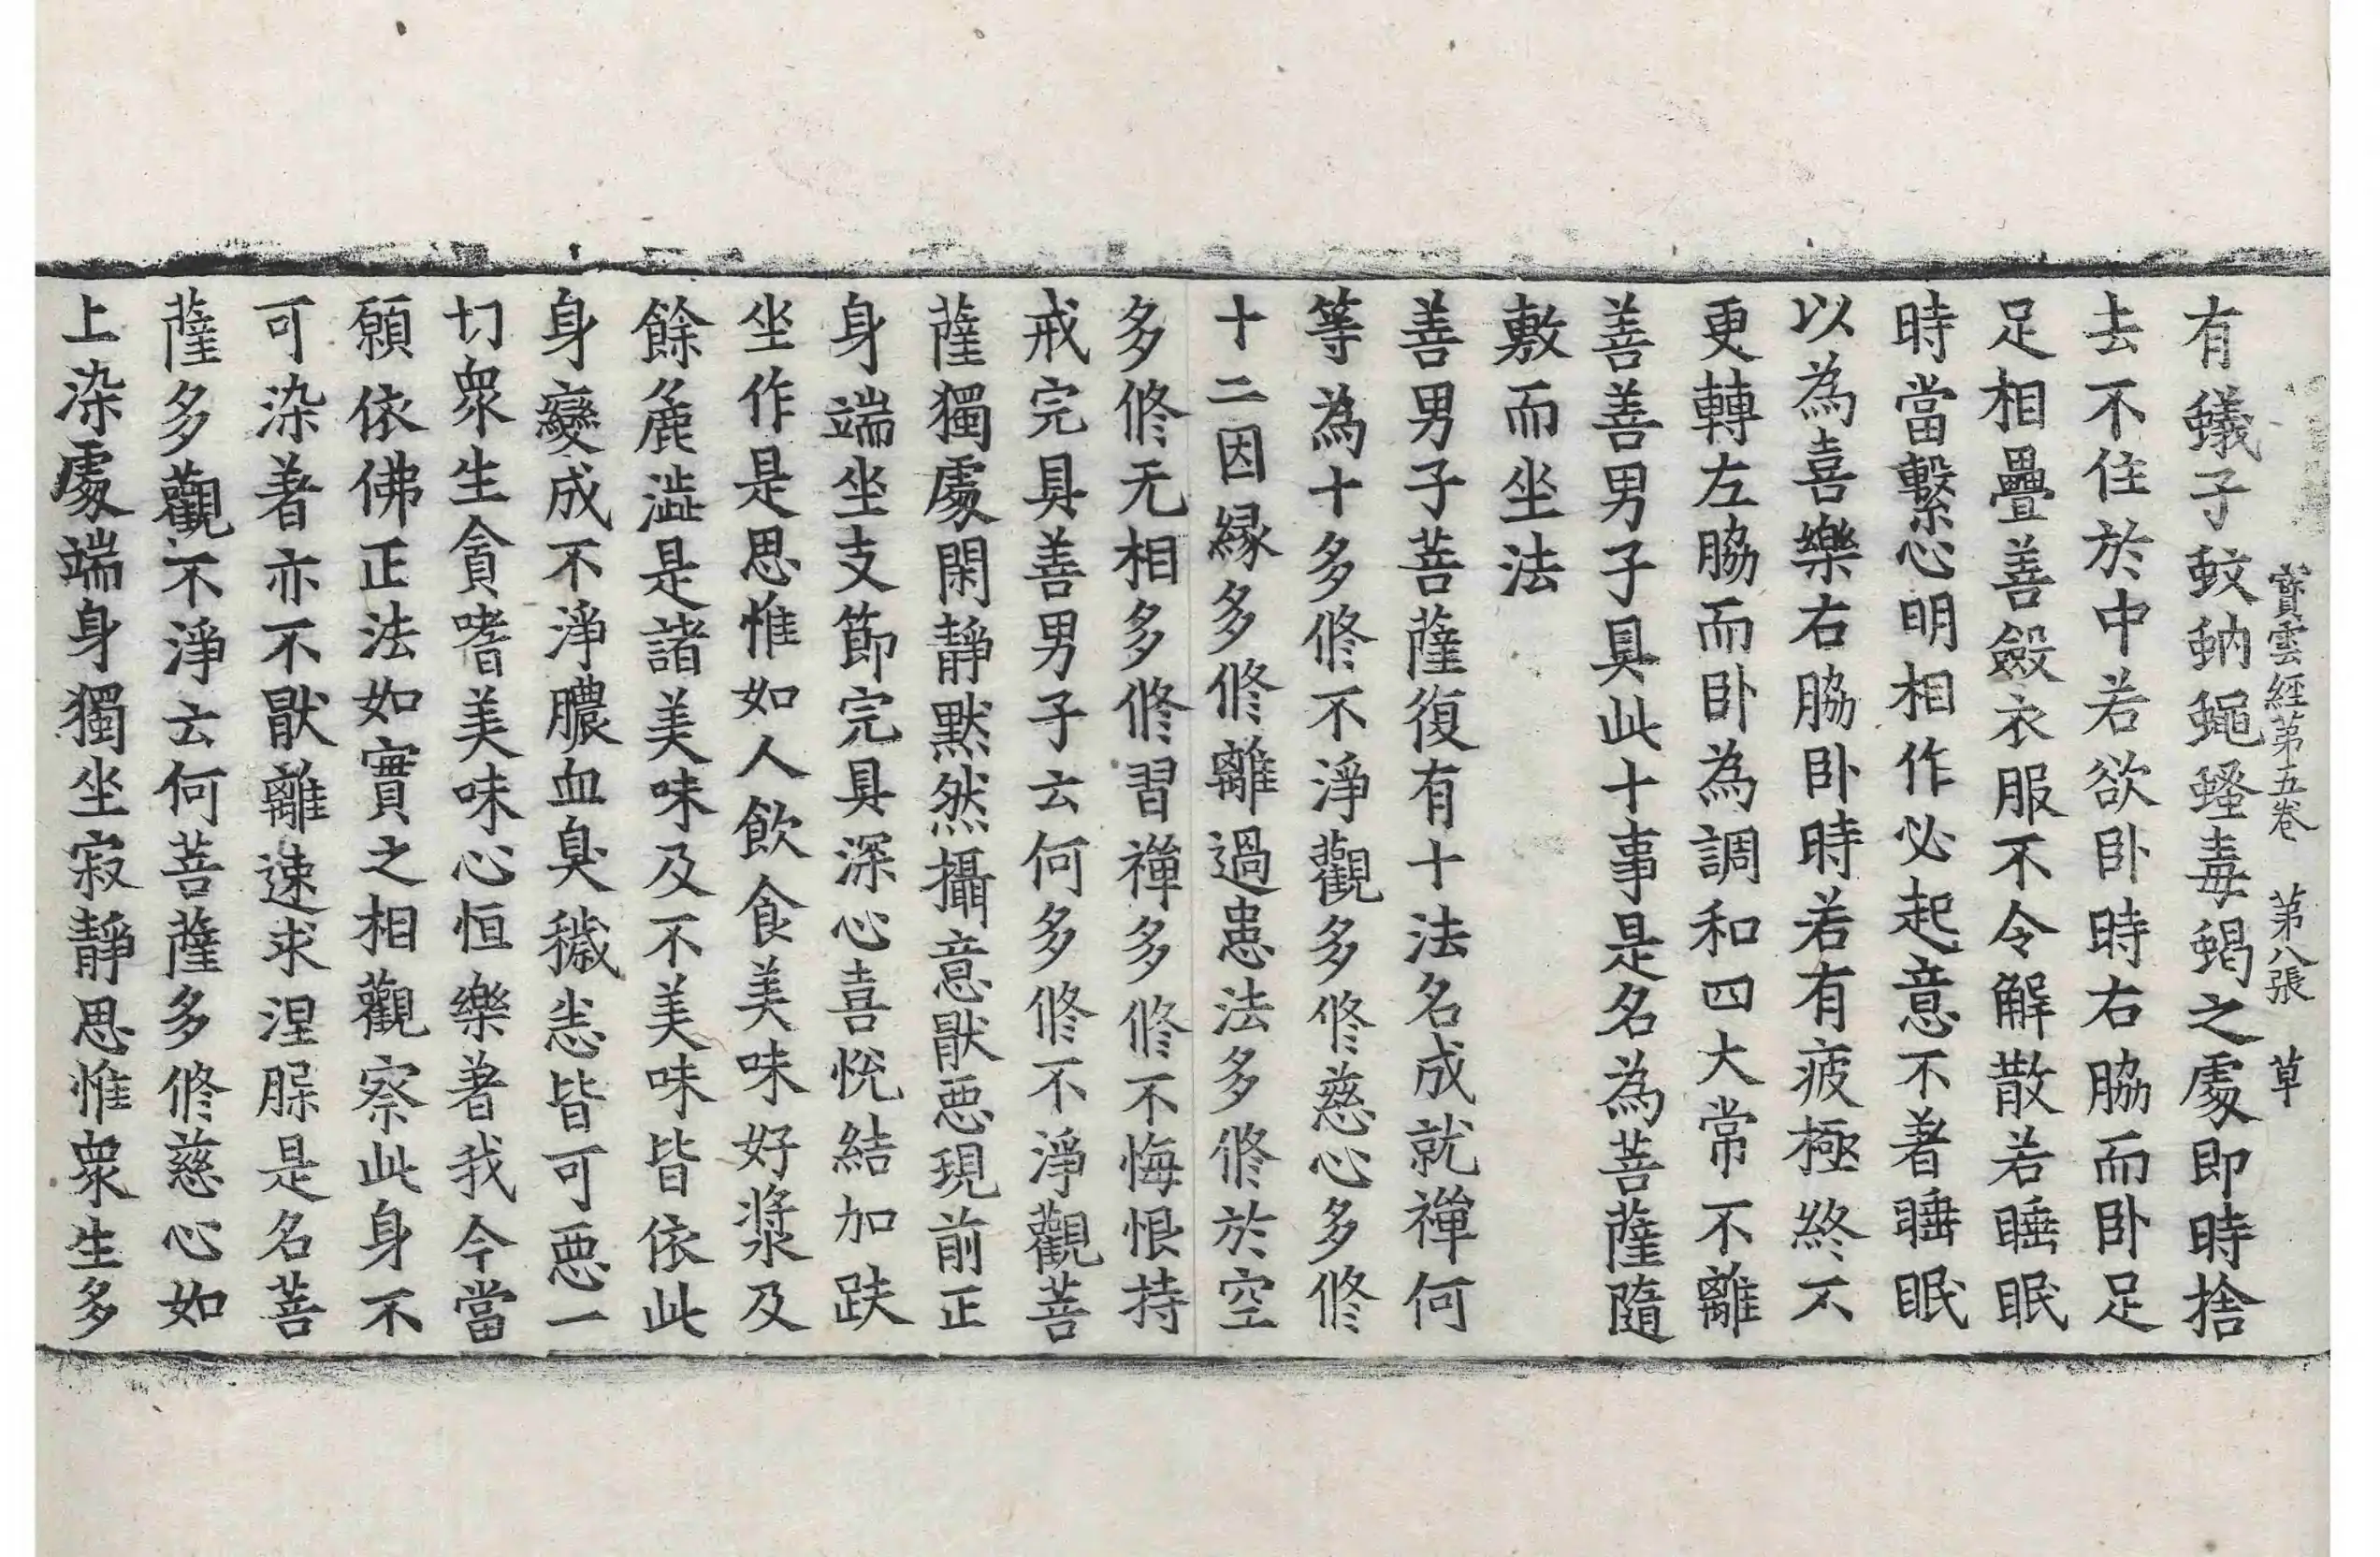 寶雲經第五卷　第八張　草
有蟻子蚊蚋蠅蚤毒蝎之處即時捨
去不住於中若欲卧時右脇而卧足
足相疊善斂衣服不令解散若睡眠
時當繫心明相作必起意不著睡眠
以為喜樂右脇卧時若有疲極終不
更轉左脇而卧為調和四大常不離
善善男子具此十事是名為菩薩隨
敷而坐法
善男子菩薩復有十法名成就禪何
等為十多修不淨觀多修慈心多修
十二因縁多修離過患法多修於空
多修无相多修習禪多修不悔恨持
戒完具善男子云何多修不淨觀菩
薩獨處閑靜默然攝意猒惡現前正
身端坐支節完具深心喜悅結加趺
坐作是思惟如人飲食美味好漿及
餘麁澁是諸美味及不美味皆依此
身變成不淨膿血臭穢恙皆可惡一
切衆生貪嗜美味心恒樂著我今當
願依佛正法如實之相觀察此身不
可染著亦不猒離速求涅槃是名菩
薩多觀不淨云何菩薩多修慈心如
上染處端身獨坐寂靜思惟衆生多